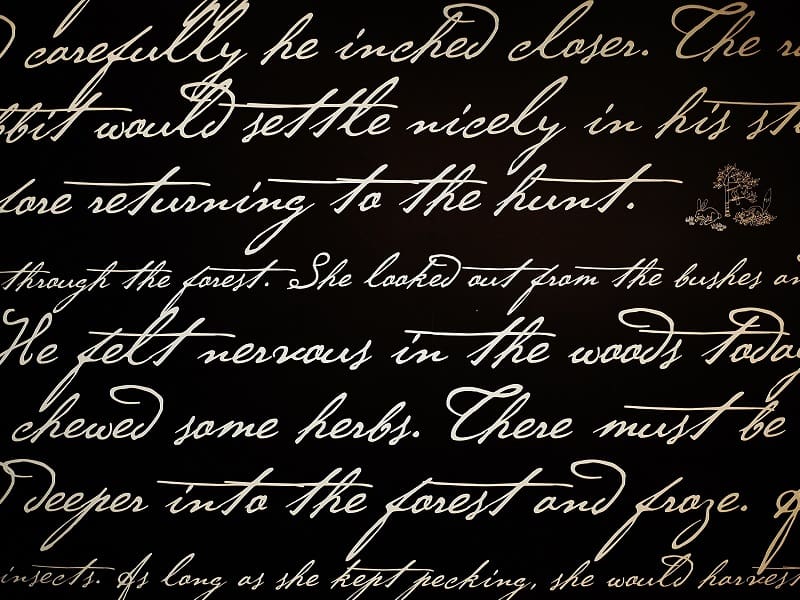 carefully he inched closer. The ra
bbit would settle nicely in his sto
fore returning to the hunt.
through the forest. She looked out from the bushes an
He felt nervous in the woods today
chewed some herbs. There must be
deeper into the forest and froze.
insects. As long as she kept pecking, she would harvest